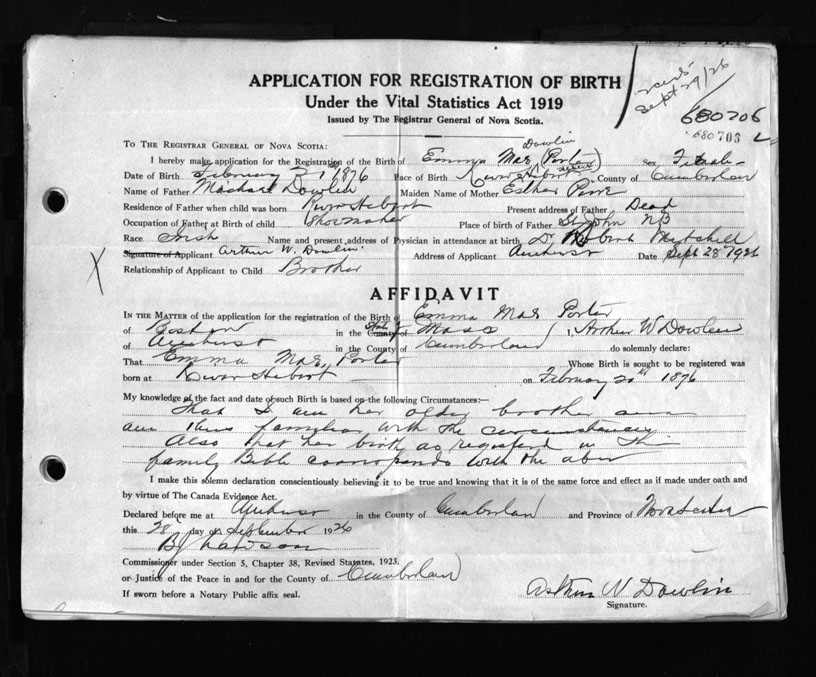 APPLICATION FOR REGISTRATION OF BIRTH
Under the Vital Statistics Act 1919
Issued by The Registrar General of Nova Scotia.
Sept 29/26
680706
680703
TO THE REGISTRAR GENERAL OF NOVA SCOTIA:
Dowlin
I hereby make application for the Registration of the Birth of Emma Mae (Porter) Sex Female
Date of Birth February 1876 Place of Birth River Hebert County of Cumberland
Name of Father Dowlin Maiden Name of Mother Esther
Residence of Father when child was born River Hebert Present address of Father Dead
Occupation of Father at Birth of child Shoemaker Place of birth of Father St John NB
Race Irish Name and present address of Physician in attendance at birth Dr Mitchell
Signature of Applicant Arthur W. Dowlin Address of Applicant Amherst Date Sept 28 1926
Relationship of Applicant to Child Brother
AFFIDAVIT
IN THE MATTER of the application for the registration of the Birth of Emma Mae Porter
of Boston in the State of County of Mass I, Arthur W Dowlin
of Amherst in the County of Cumberland do solemnly declare:
That Emma Mae Porter Whose Birth is sought to be registered was
born at River Hebert on February 1876
My knowledge of the fact and date of such Birth is based on the following Circumstances:—
That I am her older brother and
am thus familiar with the circumstances
Also that her birth as registered in the
family Bible corresponds with the above
I make this solemn declaration conscientiously believing it to be true and knowing that it is of the same force and effect as if made under oath and
by virtue of The Canada Evidence Act.
Declared before me at Amherst in the County of Cumberland and Province of Nova Scotia
this 28 day of September 1926
Commissioner under Section 5, Chapter 38, Revised Statutes, 1923.
or Justice of the Peace in and for the County of Cumberland
If sworn before a Notary Public affix seal.
Arthur W Dowlin
Signature.